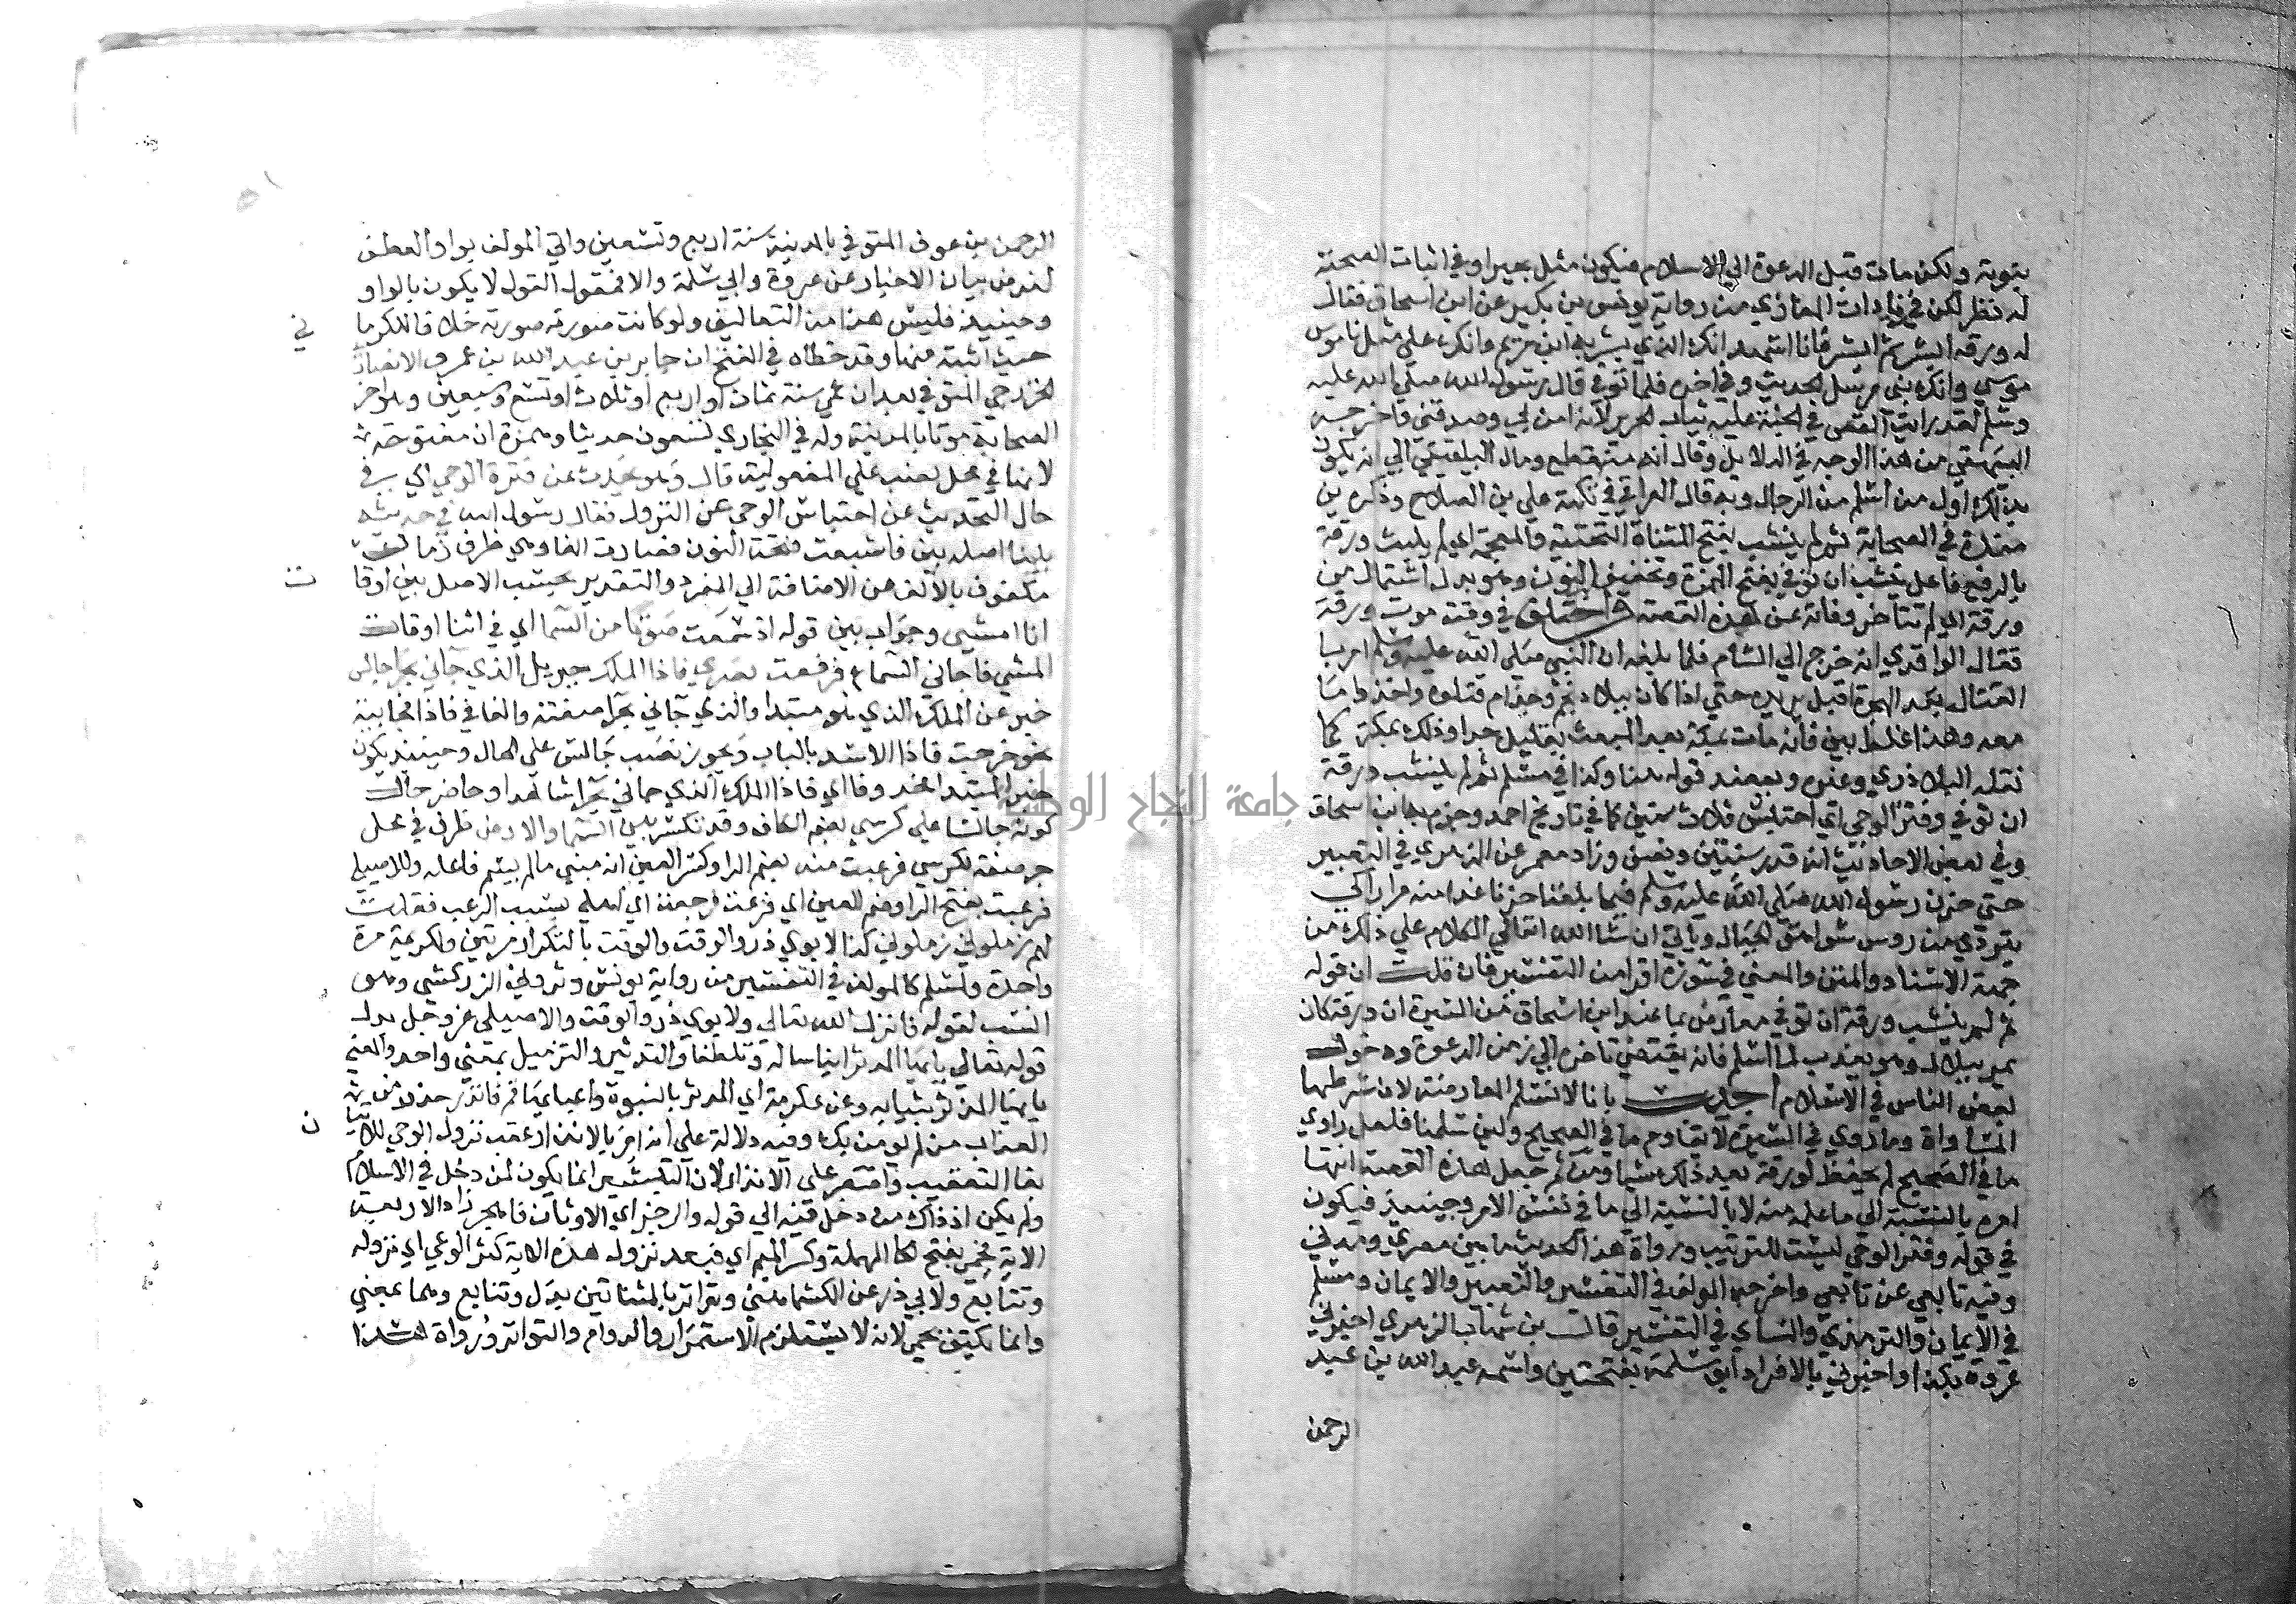 بنبوته ولكن مات قبل الدعوة الي الاسلام فيكون مثل بحيرا وفي اثبات الصحبة
له نظر لكن في زيادات المغازي من رواية يونس بن بكير عن ابن اسحاق فقال
له ورقه ابشر ثم ابشر فانا اشهد انك الذي بشر به ابن مريم وانك علي مثل ناموس
موسي وانك نبي مرسل الحديث وفي اخره فلما توفي قال رسول الله صلي الله عليه
وسلم لقد رايت القس في الجنة عليه ثياب الحرير لانه امن بي وصدقني فاخرجه
البيهقي من هذا الوجه في الدلايل وقال انه منقطع ومال البلقيني الي انه يكون
بذلك اول من اسلم من الرجال وبه قال العراقي في نكته علي بن الصلاح وذكره بن
مندة في الصحابة ثم لم ينشب بفتح المثناة التحتية والمعجمة اي لم يلبث ورقة
بالرفع فاعل ينشب ان توفي بفتح الهمزة وتخفيف النون وهو بدل اشتمال من
ورقة اي لم تتاخر وفاته عن هذه القصة واختلف في وقت موت ورقة
فقال الواقدي انه خرج الي الشام فلما بلغه ان النبي صلي الله عليه وسلم امر با
القتال بعد الهجرة اقبل يريده حتي اذا كان ببلاد لخم وجذام قتلوه واخذوا ما
معه وهذا غلط بين فانه مات بمكة بعد المبعث بقليل جدا وذلك بمكة كما
نقله البلاذري وغيره ويعضد قوله هنا وكذا في مسلم ثم لم ينشب ورقة
ان توفي وفتر الوحي اي احتبس ثلاث سنين كما في تاريخ احمد وجزم به ابن اسحاق
وفي بعض الاحاديث انه قدر سنتين ونصف وزاد معمر عن الزهري في التعبير
حتي حزن رسول الله صلي الله عليه وسلم فيما بلغنا حزنا غدا منه مرارا كي
يتردي من روس شواهق الجبال وياتي ان شا الله تعالي الكلام علي ذلك من
جهة الاسناد والمتن والمعني في سورة اقرا من التفسير فان قلت ان قوله
ثم لم ينشب ورقة ان توفي معارض بما عند ابن اسحاق في السيرة ان ورقة كان
يمر ببلال وهو يعذب لما اسلم فانه يقتضي تاخره الي زمن الدعوة ودخول
بعض الناس في الاسلام اجيب بانا لا نسلم المعارضة لان شرطها
المساواة وما روي في السيرة لا يقاوم ما في الصحيح ولين سلمنا فلعل راوي
ما في الصحيح لم يحفظ لورقة بعد ذلك شيا ومن ثم جعل هذه القصة انتها
امره بالنسبة الي ما علمه منه لا بالنسبة الي ما في نفس الامر وحينيذ فيكون
في قوله وفتر الوحي ليست للترتيب ورواة هذا الحديث ما بين مصري ومدني
وفيه تابعي عن تابعي واخرجه المولف في التفسير والتعبير والايمان ومسلم
في الايمان والترمذي والنساي في التفسير قال بن شهاب الزهري اخبرني
عروة بكذا واخبرني بالافراد ابو سلمة بفتحتين واسمه عبد الله بن عبد
الرحمن
الرحمن بن عوف المتوفي بالمدينة سنة اربع وتسعين واتي المولف بواو العطف
لغرض بيان الاخبار عن عروة وابي سلمة والا فمقول القول لا يكون بالواو
وحينيذ فليس هذا من التعاليق ولو كانت صورته صورته خلافا للكرماني
حيث اثبته منها وقد خطاه في الفتح ان جابر بن عبد الله بن عمرو الانصاري
الخزرجي المتوفي بعد ان عمي سنة ثمان او اربع او ثلاث او تسع وسبعين وهو اخر
الصحابة موتا بالمدينة وله في البخاري تسعون حديثا وهمزة ان مفتوحة
لانها في محل نصب علي المفعولية قال وهو يحدث عن فترة الوحي اي في
حال التحديث عن احتباس الوحي عن النزول فقال رسول الله في حديثه
بينا اصله بين فاشبعت فتحة النون فصارت الفا وهي ظرف زمان
مكفوف بالالف عن الاضافة الي المفرد والتقدير بحسب الاصل بين اوقات
انا امشي وجواب بين قوله اذ سمعت صوتا من السما اي في اثنا اوقات
المشي فاجاني السماع فرفعت بصري فاذا الملك جبريل الذي جاني بحرا جالس
خبر عن الملك الذي هو مبتدا والذي جاني بحرا صفته والفا في فاذا فجايية
نحو خرجت فاذا الاسد بالباب ويجوز نصب جالس علي الحال وحينيذ يكون
خبر المبتدا محذوفا اي فاذا الملك الذي جاني بحرا شاهد او حاضر حال
كونه جالسا علي كرسي بضم الكاف وقد تكسر بين السما والارض ظرف في محل
جر صفة لكرسي فرعبت منه بضم الرا وكسر العين انه مبني ما لم يسم فاعله وللاصيلي
فرعبت بفتح الرا وضم العين اي فزعت فرجعت اي لاهلي بسبب الرعب فقلت
لهم زملوني زملوني كذا لابوي ذر والوقت بالتكرار مرتين ولكريمة مرة
واحدة ولمسلم كالمولف في التفسير من رواية يونس دثروني الزركشي وهو
انسب لقوله فانزل الله تعالي ولابوي ذر والوقت والاصيلي عز وجل بدل
قوله تعالي يا ايها المدثر ايناسا له وتلطفا والتدثير والتزميل بمعني واحد والمعني
يا ايها المدثر بثيابه وعن عكرمة اي المدثر بالنبوة واعبايها قم فانذر حذر من
العذاب من لم يومن بك وفيه دلالة علي انه امر بالانذار عقب نزول الوحي للاتيان
بفا التعقيب واقتصر علي الانذار لان التبشير انما يكون لمن دخل في الاسلام
ولم يكن اذ ذاك من دخل فيه الي قوله والرجز اي الاوثان فاهجر زاد الاربعة
الاية فحمي بفتح الحا المهملة وكسر الميم اي فبعد نزول هذه الاية كثر الوحي اي نزوله
وتتابع ولابي ذر عن الكشميهني وتواتر بالمثناتين بدل وتتابع وهما بمعني
وانما يكتف بحمي لانه لا يستلزم الاستمرار والدوام والتواتر ورواة هذا
جامعة النجاح الوطنية